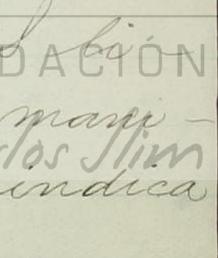 bi -
DACIÓN
mani -
los Slim
indica